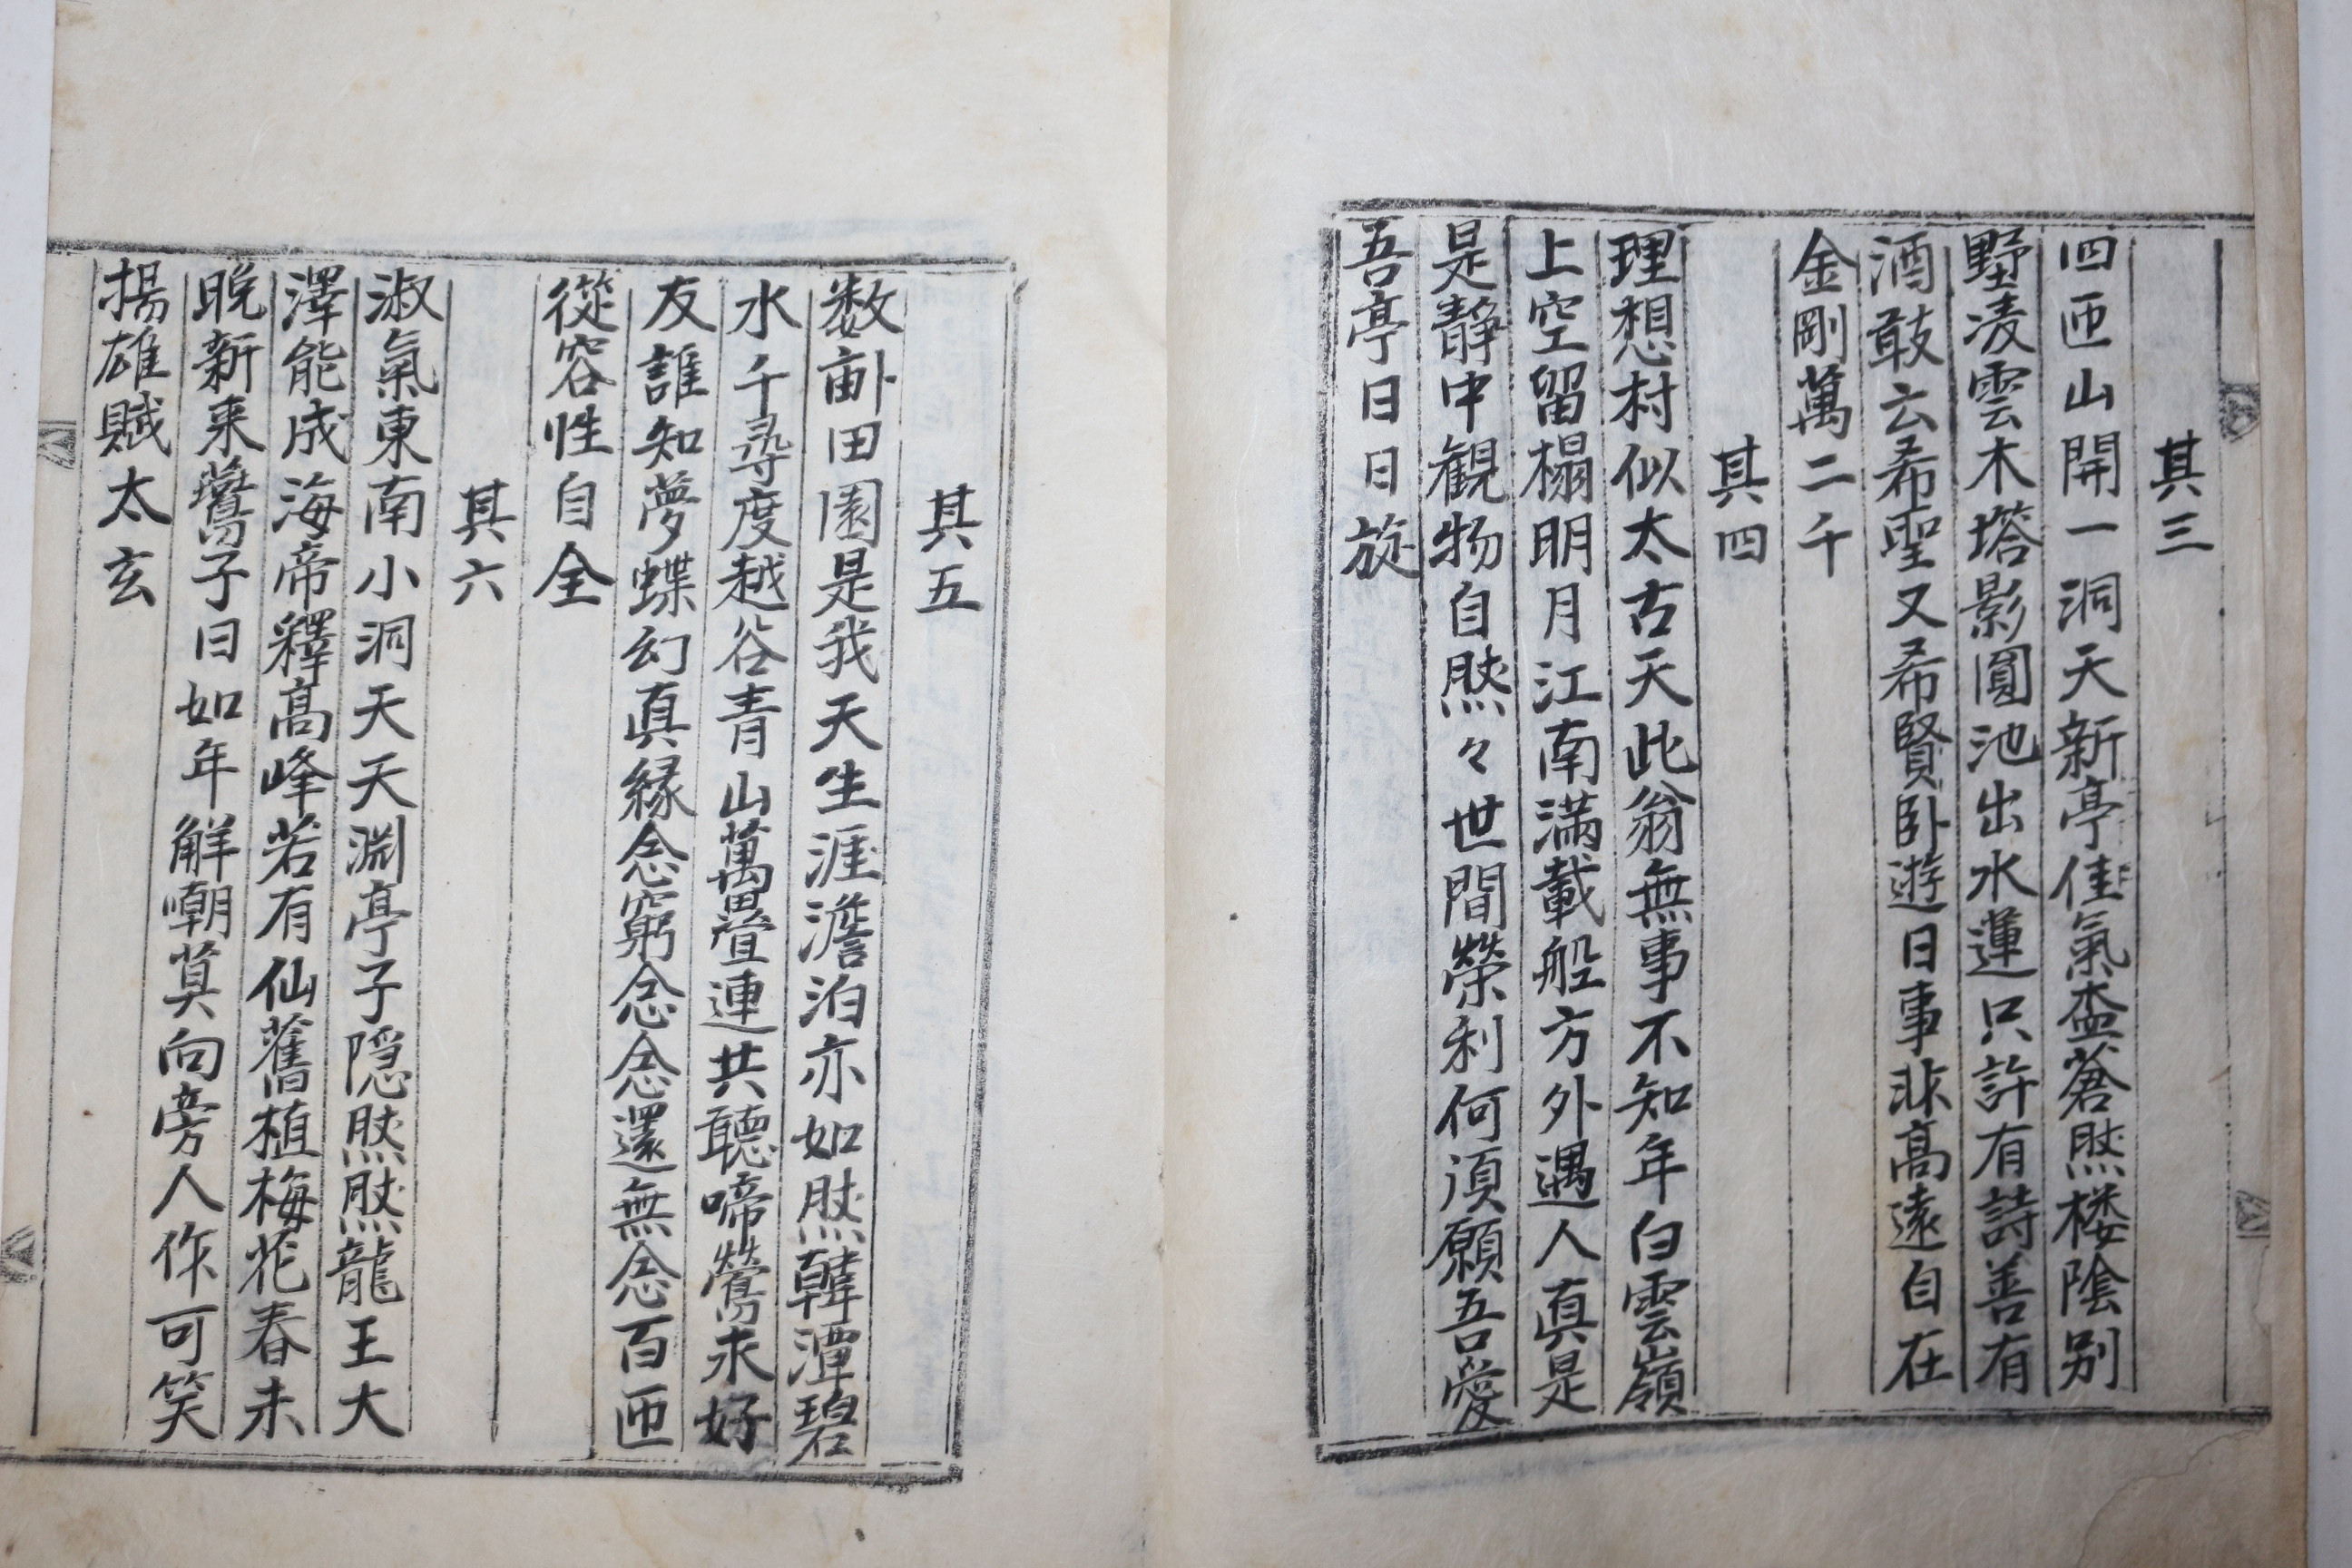 其三
四匝山開一洞天新亭佳氣盃蒼然楼陰别
野凌雲木塔影圓池出水蓮只許有詩善有
酒敢云希聖又希賢卧遊日事非高遠自在
金剛萬二千
其四
理想村似太古天此翁無事不知年白雲嶺
上空留榻明月江南滿載船方外遇人眞是
是静中観物自然々世間榮利何須願吾愛
吾亭日日旋
其五
数畝田園是我天生涯澹泊亦如然韓潭碧
水千尋度越谷青山萬疊連共聽啼鶯求好
友誰知夢蝶幻真緣念窮念念還無念百匝
從容性自全
其六
淑氣東南小洞天天淵亭子隠然然龍王大
澤能成海帝釋高峰若有仙舊植梅花春未
晩新来鷰子日如年解嘲莫向旁人作可笑
揚雄賦太玄